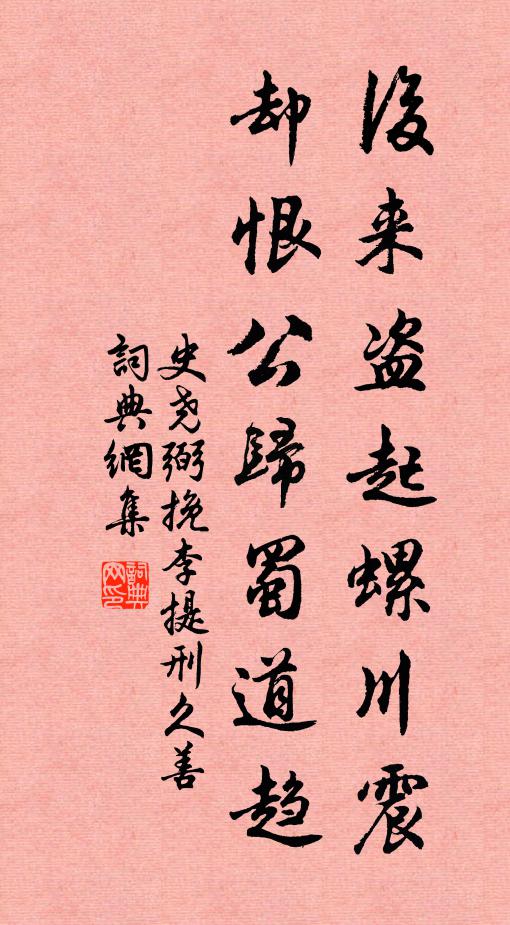 後来盗起螺川震
却恨公歸蜀道趋
史尧弼挽李提刑久善
詞典網集
詞典
网印